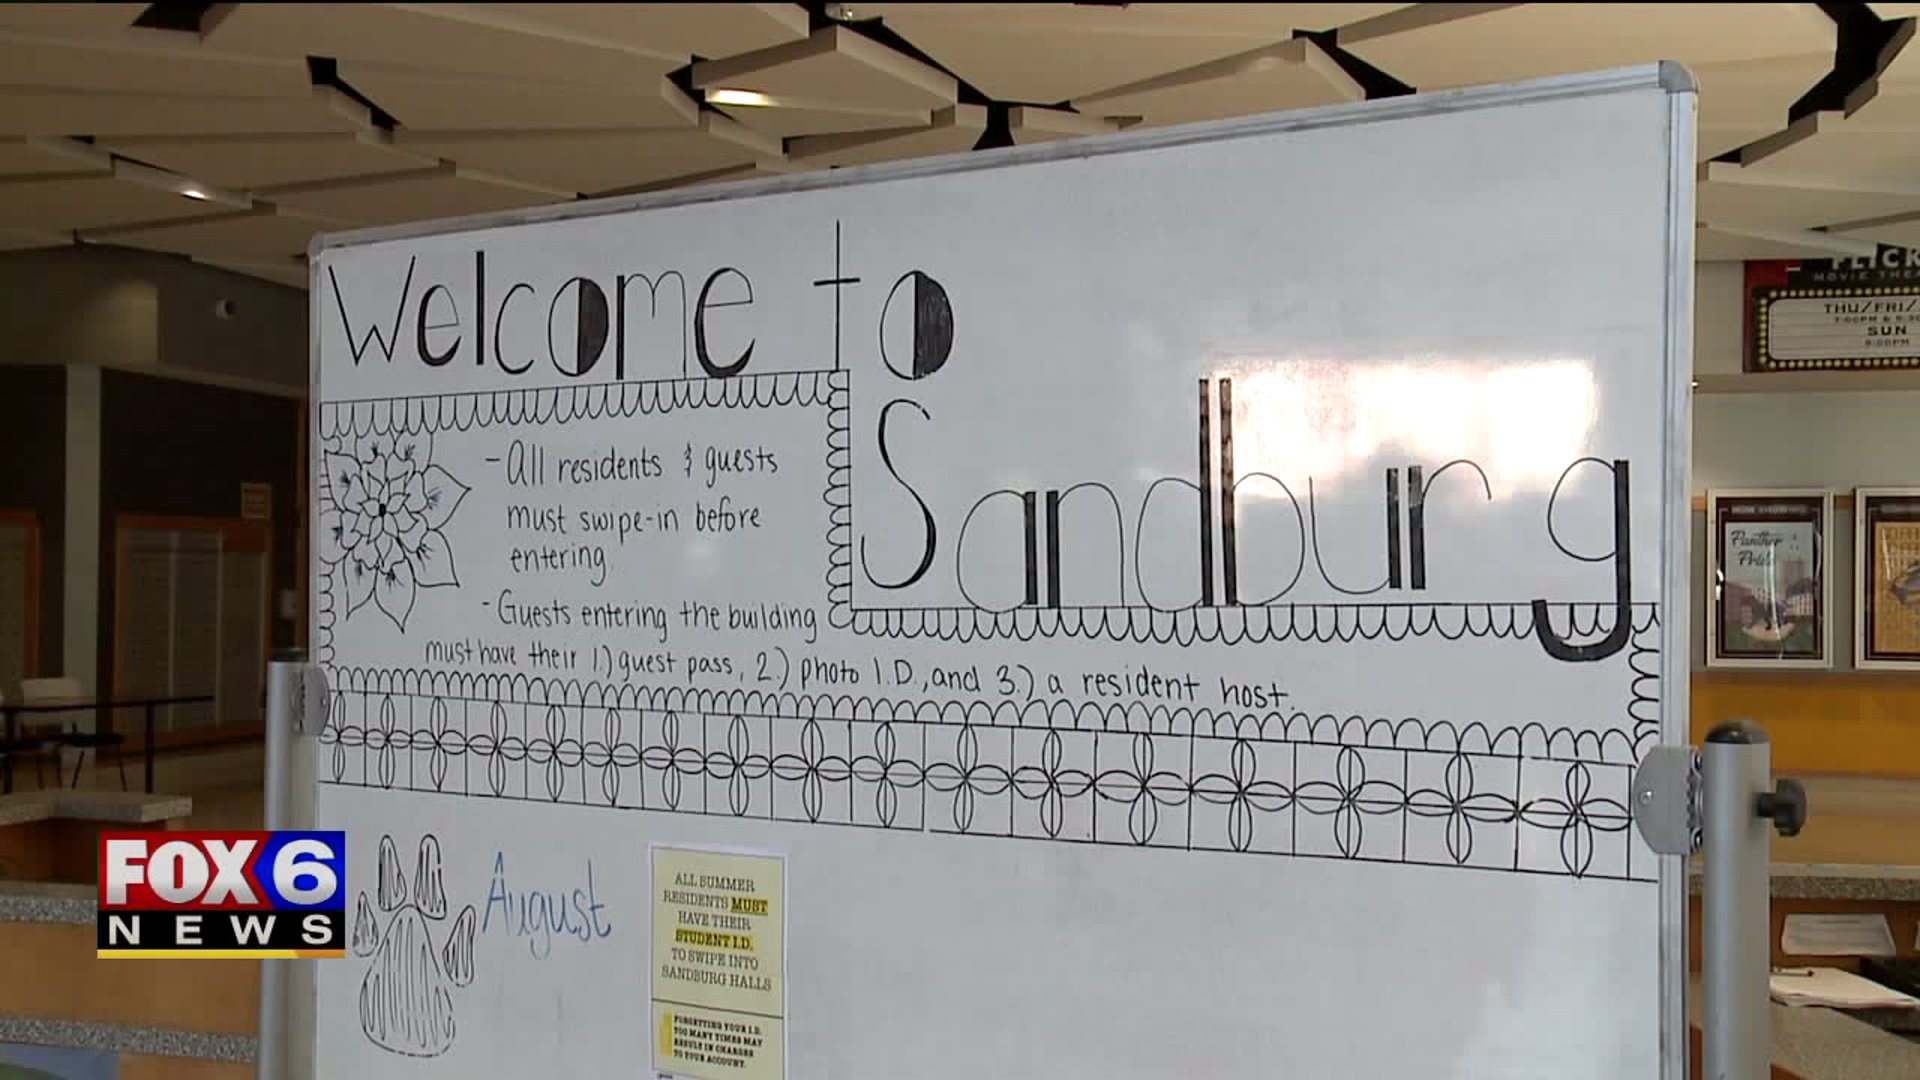 Welcome to
Sandburg
- All residents & guests
must swipe-in before
entering.
- Guests entering the building
must have their 1.) guest pass, 2.) photo I.D., and 3.) a resident host.
August
ALL SUMMER
RESIDENTS MUST
HAVE THEIR
STUDENT I.D.
TO SWIPE INTO
SANDBURG HALLS
FORGETTING YOUR I.D.
TOO MANY TIMES MAY
RESULT IN CHARGES
TO YOUR ACCOUNT.
FLICK
MOVIE THEA
THU/FRI/
SUN
Panther
Pride
FOX 6
NEWS